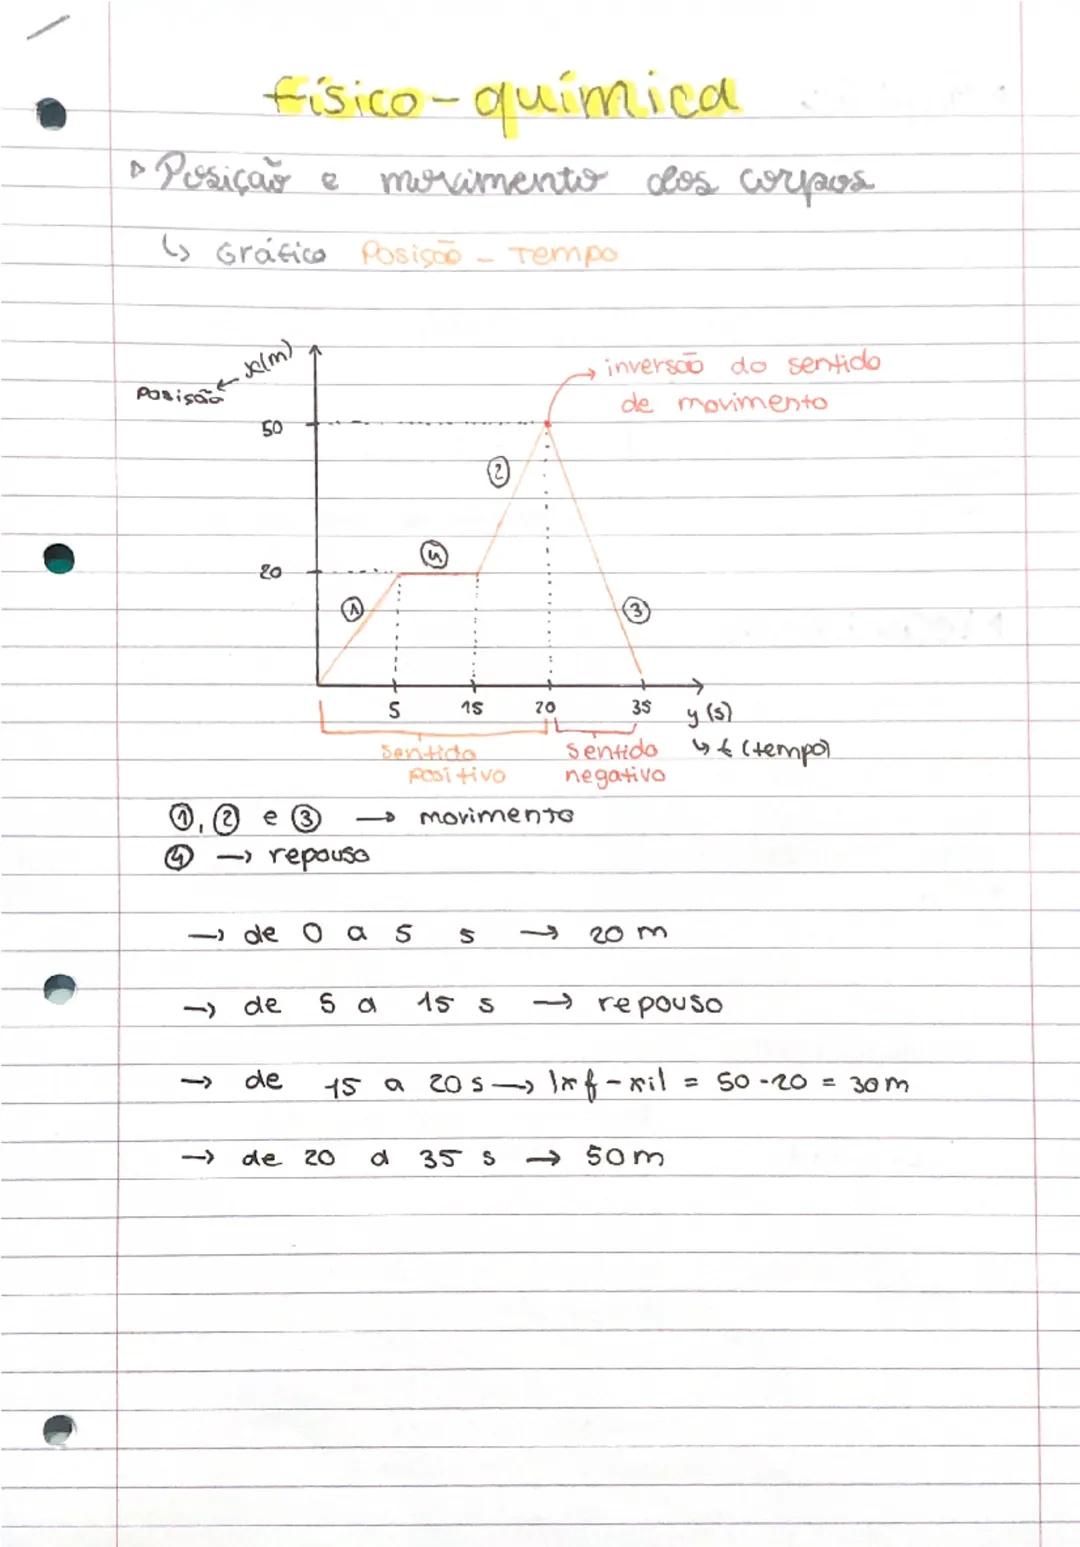 físico-química
▷ Posição e movimento dos corpos
↳ Gráfico Posição - Tempo
x(m)
Posição ←
→ inversão do sentido
de movimento
50
②
④
20
①
③
5 15 20 35 y (s)
sentido sentido ↳ t (tempo)
positivo negativo
①, ② e ③ → movimento
④ → repouso
→ de 0 a 5 s → 20 m
→ de 5 a 15 s → repouso
→ de 15 a 20 s → |xf - xi| = 50 - 20 = 30m
→ de 20 a 35 s → 50m